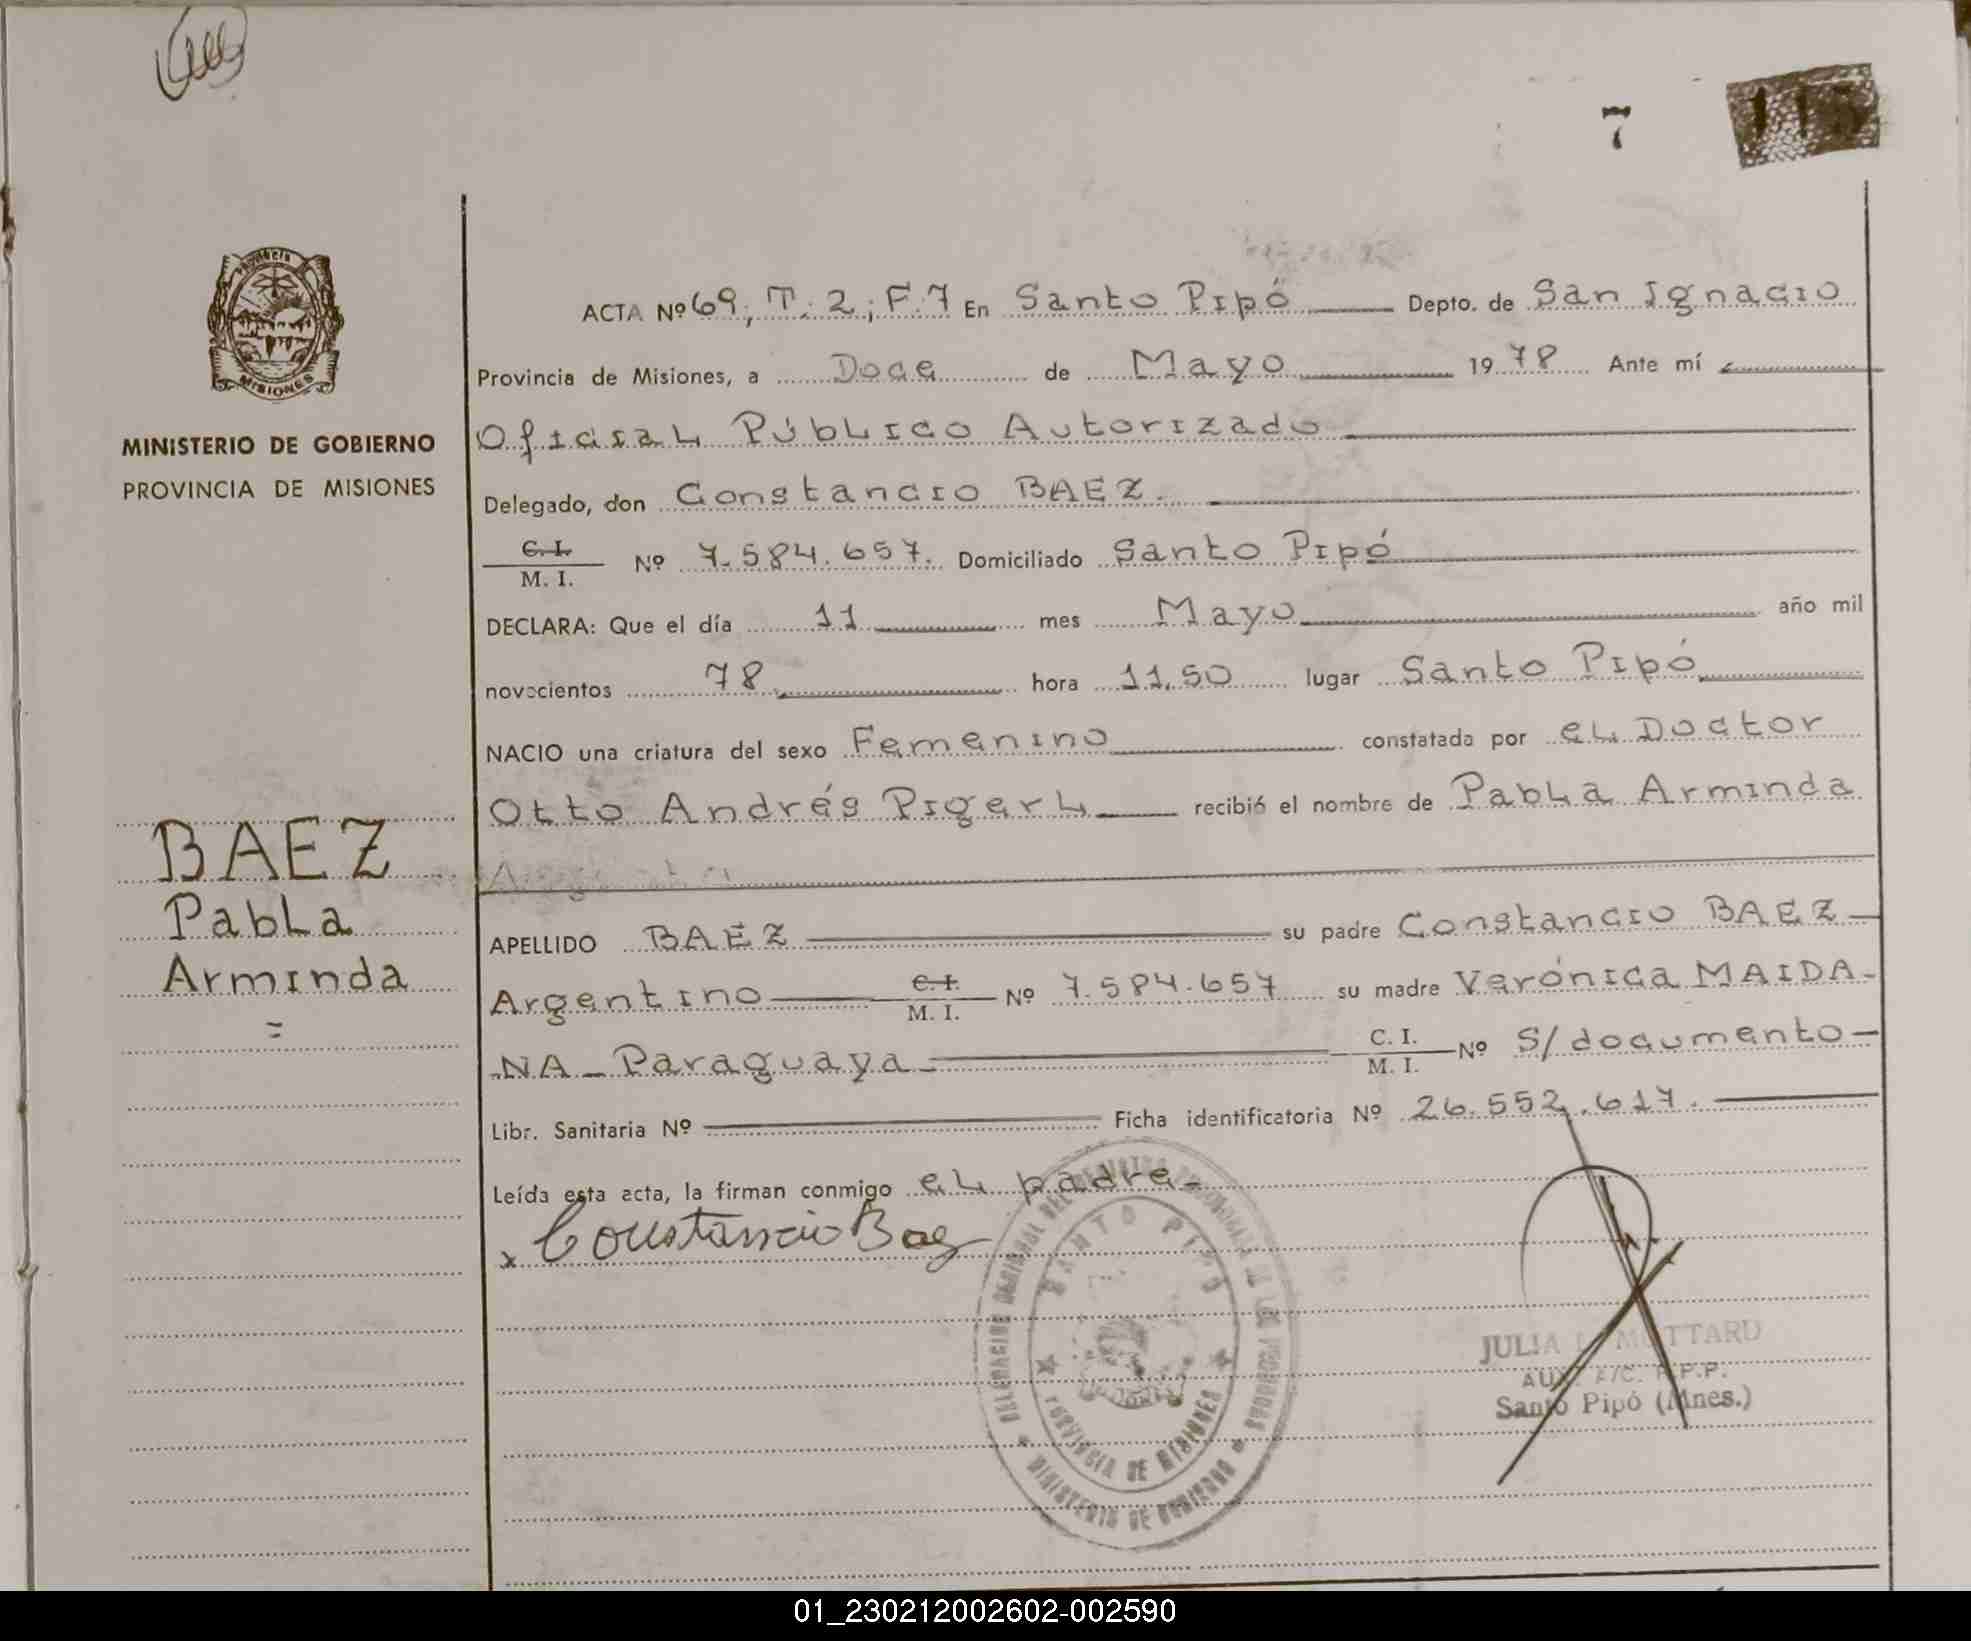 7
115
Provincia
MISIONES
MINISTERIO DE GOBIERNO
PROVINCIA DE MISIONES
BAEZ
Pabla
Arminda
=
ACTA Nº 69; T: 2; F: 7 En Santo Pipó Depto. de San Ignacio
Provincia de Misiones, a Doce de Mayo 19 78 Ante mí
Oficial Público Autorizado
Delegado, don Constancio BAEZ.
C. I.
M. I. Nº 7.584.657. Domiciliado Santo Pipó
DECLARA: Que el día 11 mes Mayo año mil
novecientos 78 hora 11,50 lugar Santo Pipó
NACIO una criatura del sexo Femenino constatada por el Doctor
Otto Andrés Pigerl recibió el nombre de Pabla Arminda
APELLIDO BAEZ su padre Constancio BAEZ
Argentino C. I. M. I. Nº 7.584.657 su madre Verónica MAIDA-
NA - Paraguaya - C. I. M. I. Nº S/documento
Libr. Sanitaria Nº Ficha identificatoria Nº 26.552.617.
Leída esta acta, la firman conmigo el padre-
x Constancio Baez
SANTO PIPO
PROVINCIA DE MISIONES
MINISTERIO DE GOBIERNO
JULIA MOTTARD
AUX. A/C. R.P.P.
Santo Pipó (Mnes.)
01_230212002602-002590